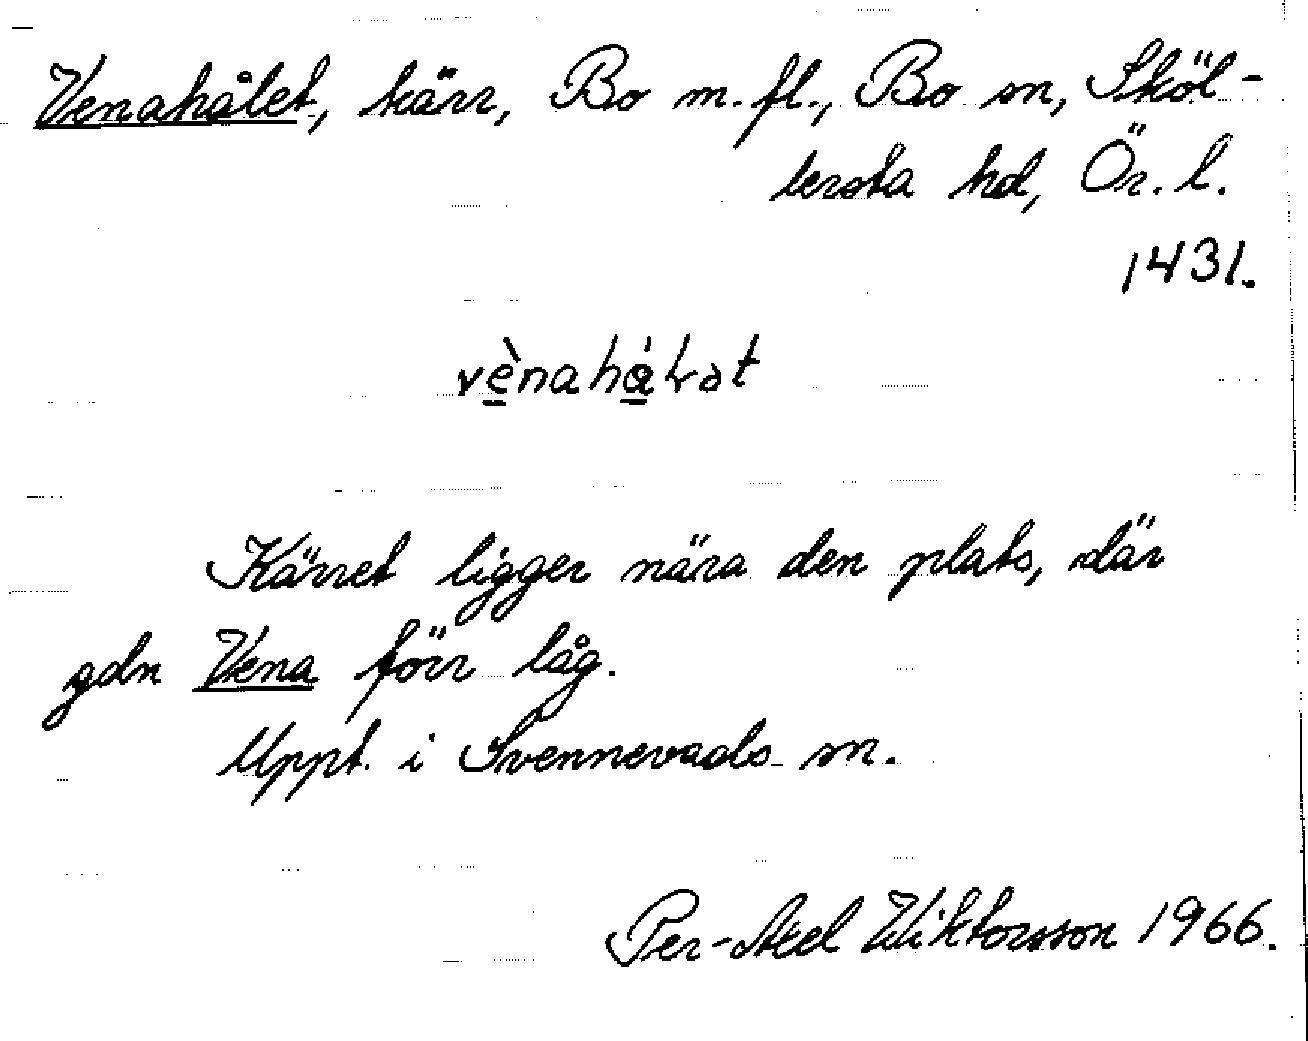 Venahålet, kärr, Bo m. fl., Bo sn, Sköl-
lersta hd, Ör. l.
1431.
Kärret ligger nära den plats, där
gdn Vena förr låg.
Uppt. i Svennevads sn.
Per-Axel Wiktorsson 1966.